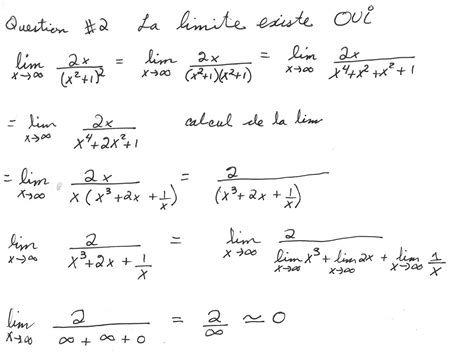 Question #2 La limite existe OUi
lim x→∞ 2x/(x²+1)² = lim x→∞ 2x/(x²+1)(x²+1) = lim x→∞ 2x/x⁴+x²+x²+1
= lim x→∞ 2x/x⁴+2x²+1 calcul de la lim
= lim x→∞ 2x/x(x³+2x+1/x) = 2/(x³+2x+1/x)
lim x→∞ 2/x³+2x+1/x = lim x→∞ 2/lim x→∞ x³+lim x→∞ 2x+lim x→∞ 1/x
lim x→∞ 2/∞+∞+0 = 2/∞ ≃ 0